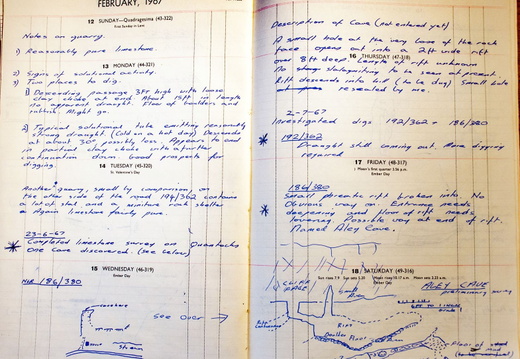 FEBRUARY, 1967
12 SUNDAY—Quadragesima (43-322)
First Sunday in Lent
Notes on quarry.
1) Reasonably pure limestone
13 MONDAY (44-321)
2) Signs of solutional activity.
3) Two places to dig.
1) Descending passage 3ft high with loose
clay choke at end. About 15ft in length
no apparent draught. Floor of boulders and
rubble. Might go.
2) Typical solutional tube emitting reasonably
strong draught (Cold on a hot day) Descends
at about 30° possibly less. Appears to end
in partial clay choke with a further
continuation down. Good prospects for
digging.
14 TUESDAY (45-320)
St. Valentine's Day
Another quarry, small by comparison, on
the other side of the road 194/362 contains
a lot of and miniature rock shelter
Again limestone fairly pure.
23-6-67
Completed limestone survey on
One Cave discovered. (see below)
15 WEDNESDAY (46-319)
Ember Day
NGR 186/380
See Over →
Description of Cave (not entered yet)
A small hole at the very base of the rock
face opens out into a 2ft wide rift
over 8ft deep. Length of rift unknown
16 THURSDAY (47-318)
No stalagmiting to be seen at present.
Rift descends into hill (to be dug) Small hole
revealed by me.
2-7-67
Investigated digs 192/362 + 186/380
192/362
Draught still coming out. More digging
required
17 FRIDAY (48-317)
Moon's first quarter 3.56 p.m.
Ember Day
186/380
Small phreatic rift broken into. No
Obvious way on. Entrance needs
deepening and floor of rift needs
lowering. Possible way at end of rift.
Named Aley Cave.
18 SATURDAY (49-316)
Ember Day
CLIFF FACE
ALEY CAVE
preliminary survey
Rift
Boulder Floor
Floor of